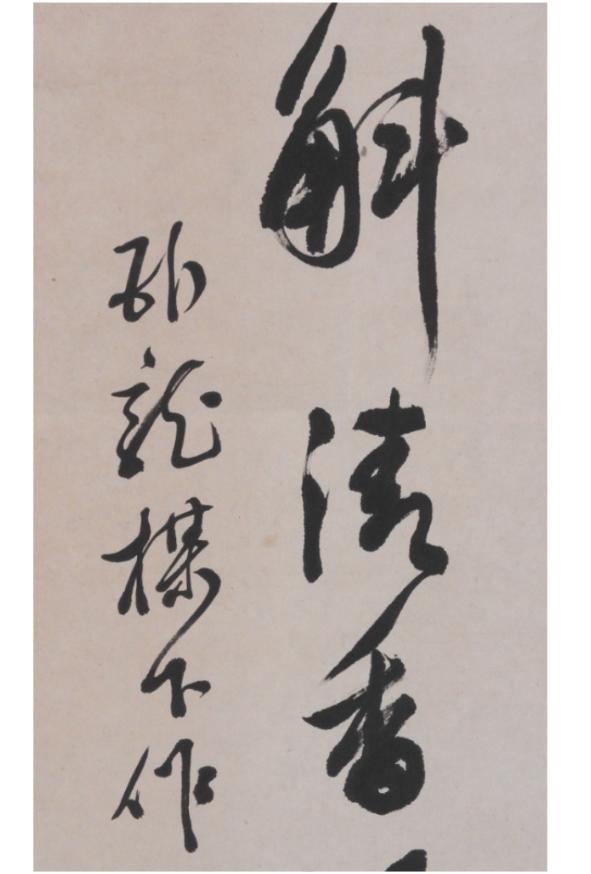 斛清香
卧龍楳下作